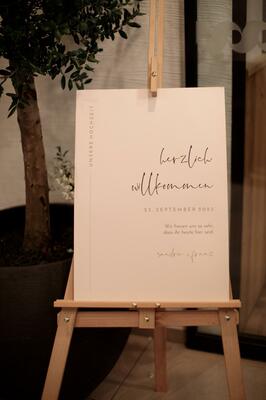 UNSERE HOCHZEIT
herzlich
willkommen
Wir freuen uns so sehr,
dass ihr heute hier seid.
sandra & franz